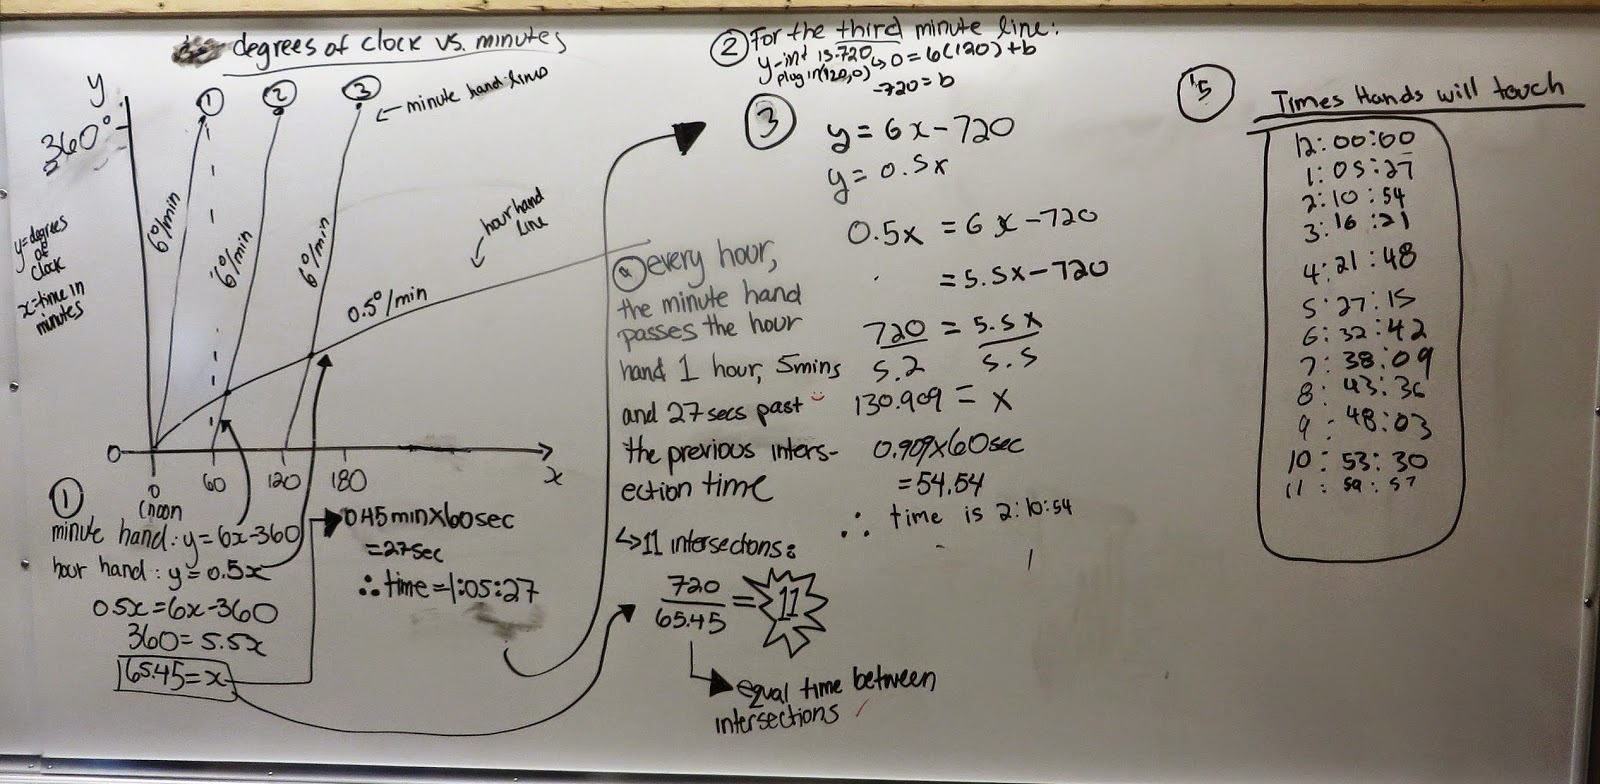 degrees of clock vs. minutes
y
360°
y=degrees
of
clock
x=time in
minutes
1
2
3
← minute hand lines
6°/min
6°/min
6°/min
hour hand
line
0.5°/min
0
x
0
60
120
180
(noon
1
minute hand: y=6x-360
hour hand: y=0.5x
0.5x=6x-360
360=5.5x
65.45=x
0.45min×60sec
=27sec
∴ time=1:05:27
2 For the third minute line:
y-int is -720
plug in(120,0) ↳ 0=6(120)+b
-720=b
3
y=6x-720
y=0.5x
0.5x = 6x-720
= 5.5x-720
720 = 5.5x
5.2 5.5
130.909 = x
0.909×60sec
=54.54
∴ time is 2:10:54
4 every hour,
the minute hand
passes the hour
hand 1 hour, 5mins
and 27secs past
the previous inters-
ection time
↳ 11 intersections:
720
65.45
= 11
equal time between
intersections ✓
5 Times Hands will touch
12:00:00
1:05:27
2:10:54
3:16:21
4:21:48
5:27:15
6:32:42
7:38:09
8:43:36
9:48:03
10:53:30
11:59:57